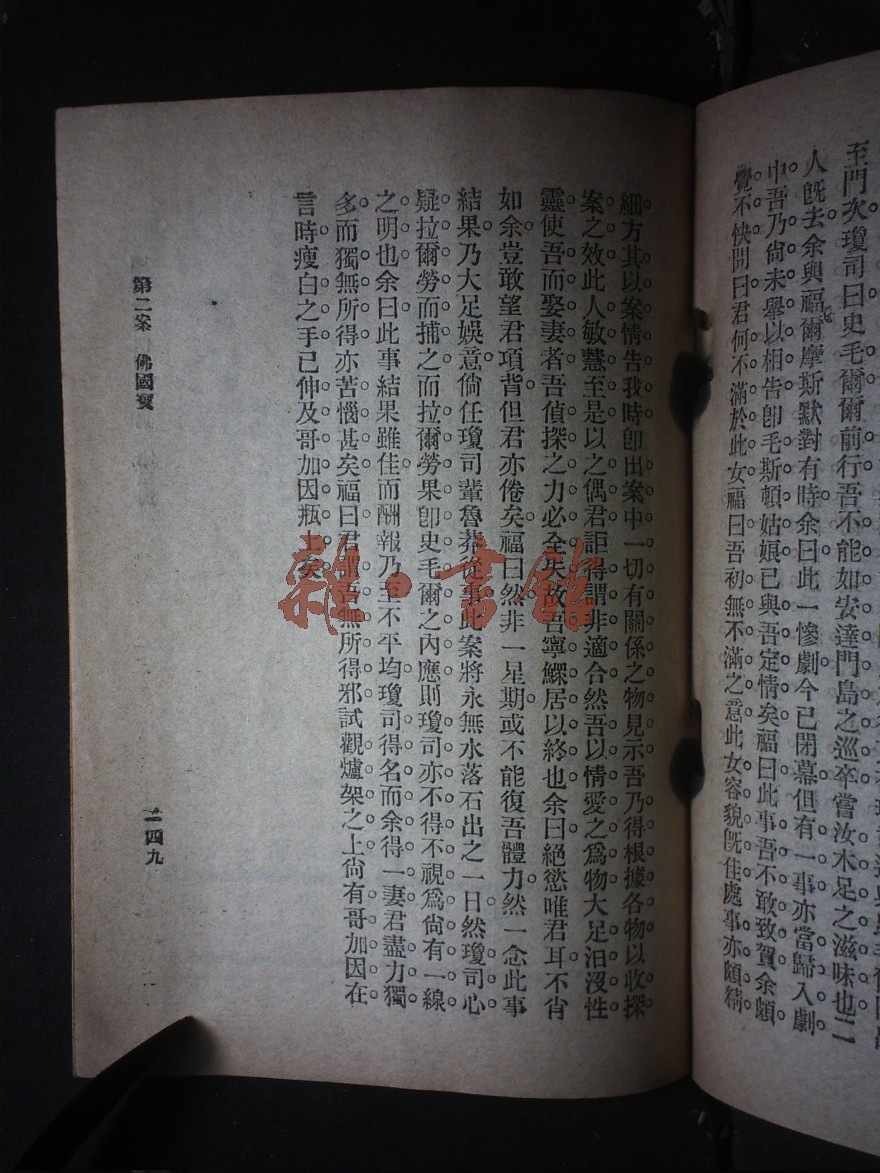 至門次瓊司曰史毛爾爾前行吾不能如安達門島之巡卒嘗汝木足之滋味也二
人旣去余與福爾摩斯默對有時余曰此一慘劇今已閉幕但有一事亦當歸入劇
中吾乃尙未舉以相告卽毛斯頓姑娘已與吾定情矣福曰此事吾不敢致賀余頗
覺不快問曰君何不滿於此女福曰吾初無不滿之意此女容貌旣佳處事亦頗精
細方其以案情告我時卽出案中一切有關係之物見示吾乃得根據各物以收探
案之效此人敏慧至是以之偶君詎得謂非適合然吾以情愛之爲物大足汨沒性
靈使吾而娶妻者吾偵探之力必全失故吾寧鰥居以終也余曰絕慾唯君耳不肖
如余豈敢望君項背但君亦倦矣福曰然非一星期或不能復吾體力然一念此事
結果乃大足娛意倘任瓊司輩魯莽從事此案將永無水落石出之一日然瓊司心
疑拉爾勞而捕之而拉爾勞果卽史毛爾之內應則瓊司亦不得不視爲尙有一線
之明也余曰此事結果雖佳而酬報乃至不平均瓊司得名而余得一妻君盡力獨
多而獨無所得亦苦惱甚矣福曰君謂吾無所得邪試觀爐架之上尙有哥加因在
言時瘦白之手已伸及哥加因瓶上矣
第二案 佛國寶
一四九
雜·書館